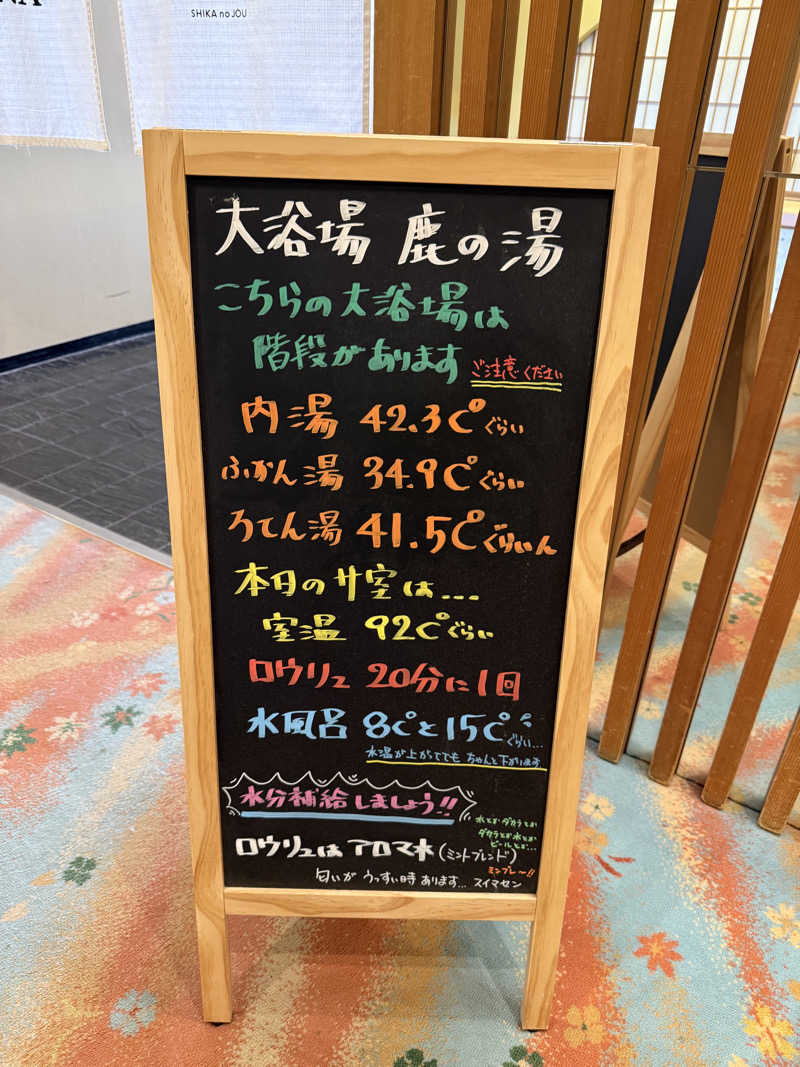 SHIKA no JOU
大浴場 鹿の湯
こちらの大浴場は
階段があります ご注意ください
内湯 42.3℃ぐらい
ふかん湯 34.9℃ぐらい
ろてん湯 41.5℃ぐらいん
本日のサ室は...
室温 92℃ぐらい
ロウリュ 20分に1回
水風呂 8℃と15℃ぐらい...
水温が上がってても ちゃんと下がります
水分補給しましょう!!
水とかダカラとか
ダカラとか水とか
ビールとか...
ロウリュは アロマ水(ミントブレンド)
ミンブレ〜!!
匂いが うっすい時 あります... スイマセン